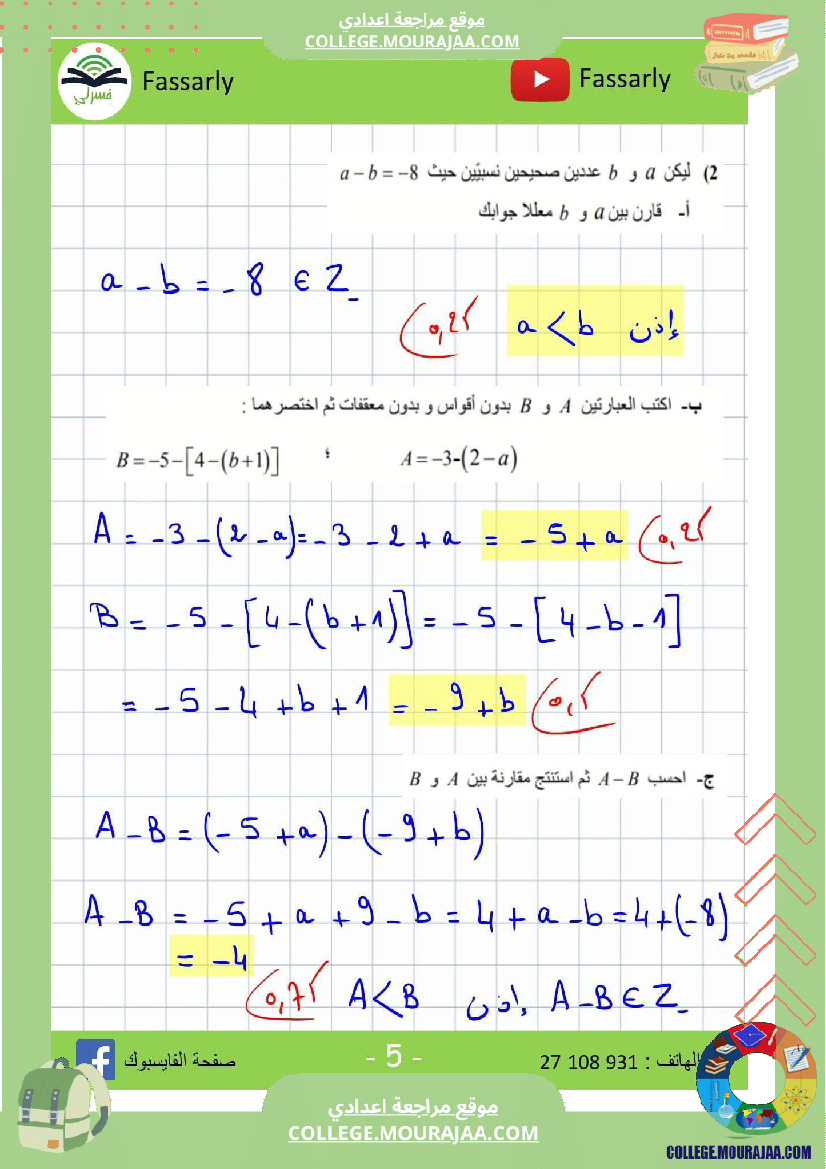 موقع مراجعة اعدادي
COLLEGE.MOURAJAA.COM
فسرلي Fassarly Fassarly
2) ليكن a و b عددين صحيحين نسبيّين حيث a − b = −8
أ- قارن بين a و b معللا جوابك
a - b = - 8 ∈ Z_
إذن a < b 0,25
ب- اكتب العبارتين A و B بدون أقواس و بدون معقفات ثم اختصرهما :
A = −3-(2 − a) ؛ B = −5−[4−(b+1)]
A = -3 -(2 -a)= -3 -2 + a = -5 + a 0,25
B = -5 -[4-(b+1)] = -5 -[4 -b -1]
= -5 -4 +b +1 = -9 +b 0,5
ج- احسب A − B ثم استنتج مقارنة بين A و B
A - B = (-5 +a) - (-9 + b)
A - B = -5 + a + 9 - b = 4 + a - b = 4+(-8)
= -4
A - B ∈ Z_ إذن A < B 0,75
صفحة الفايسبوك
- 5 -
الهاتف : 27 108 931
موقع مراجعة اعدادي
COLLEGE.MOURAJAA.COM
COLLEGE.MOURAJAA.COM